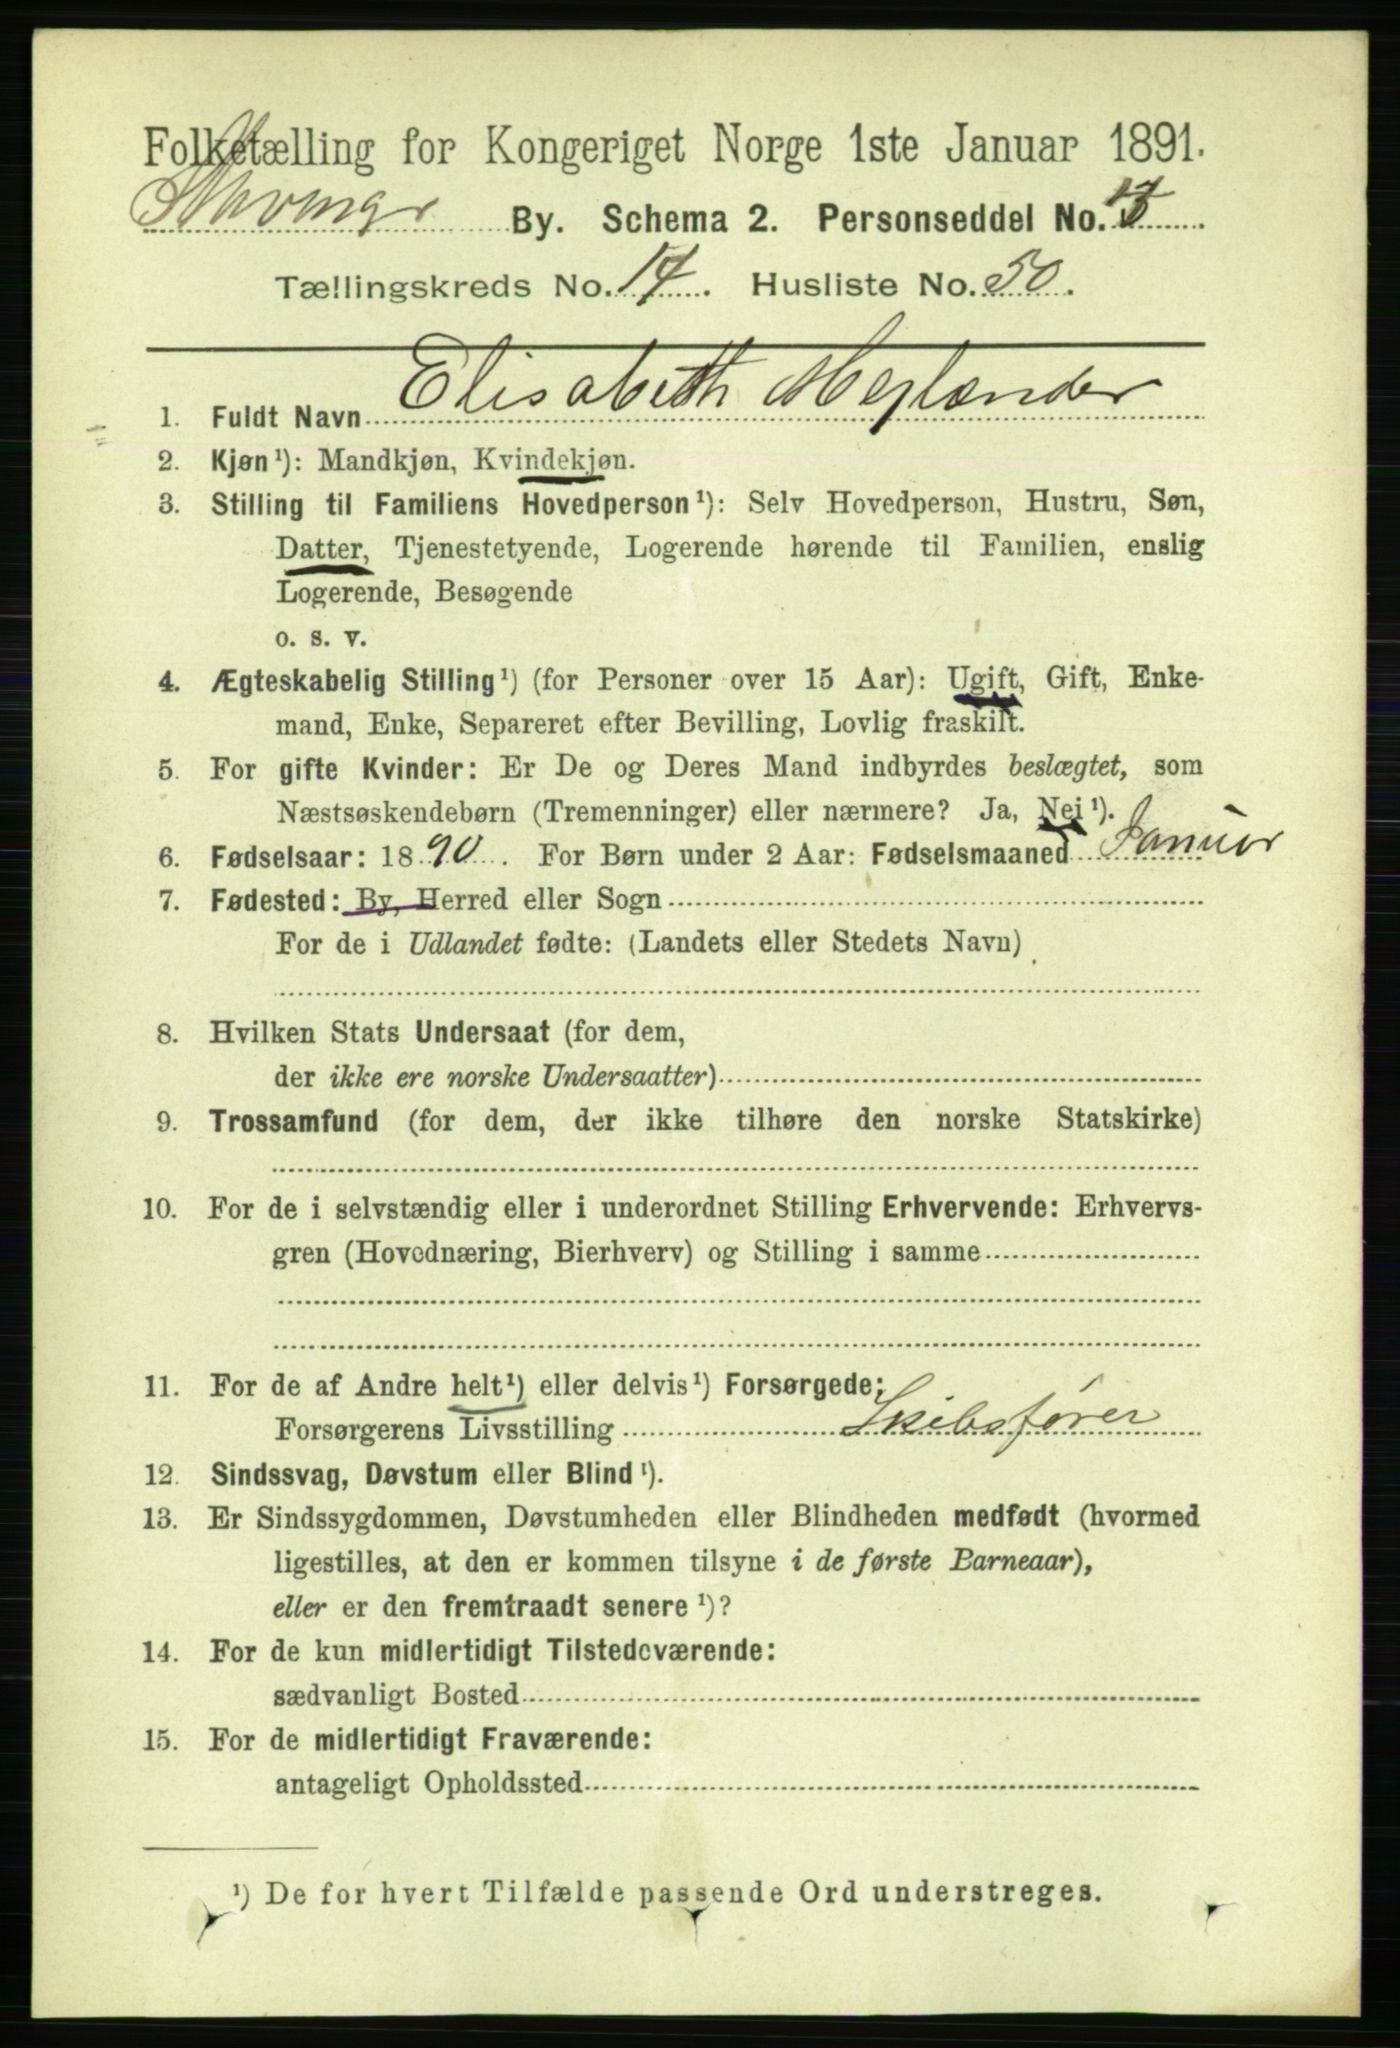 Folketælling for Kongeriget Norge 1ste Januar 1891.
Stavanger By. Schema 2. Personseddel No.
Tællingskreds No. 17. Husliste No. 50.
1. Fuldt Navn Elisabeth Meglænder
2. Kjøn ¹): Mandkjøn, Kvindekjøn.
3. Stilling til Familiens Hovedperson ¹): Selv Hovedperson, Hustru, Søn,
Datter, Tjenestetyende, Logerende hørende til Familien, enslig
Logerende, Besøgende
o. s. v.
4. Ægteskabelig Stilling ¹) (for Personer over 15 Aar): Ugift, Gift, Enke-
mand, Enke, Separeret efter Bevilling, Lovlig fraskilt.
5. For gifte Kvinder: Er De og Deres Mand indbyrdes beslægtet, som
Næstsøskendebørn (Tremenninger) eller nærmere? Ja, Nei ¹).
6. Fødselsaar: 1890. For Børn under 2 Aar: Fødselsmaaned Januar
7. Fødested: By, Herred eller Sogn
For de i Udlandet fødte: (Landets eller Stedets Navn)
8. Hvilken Stats Undersaat (for dem,
der ikke ere norske Undersaatter)
9. Trossamfund (for dem, der ikke tilhøre den norske Statskirke)
10. For de i selvstændig eller i underordnet Stilling Erhvervende: Erhvervs-
gren (Hovednæring, Bierhverv) og Stilling i samme
11. For de af Andre helt ¹) eller delvis ¹) Forsørgede:
Forsørgerens Livsstilling Skibsfører
12. Sindssvag, Døvstum eller Blind ¹).
13. Er Sindssygdommen, Døvstumheden eller Blindheden medfødt (hvormed
ligestilles, at den er kommen tilsyne i de første Barneaar),
eller er den fremtraadt senere ¹)?
14. For de kun midlertidigt Tilstedeværende:
sædvanligt Bosted
15. For de midlertidigt Fraværende:
antageligt Opholdssted
¹) De for hvert Tilfælde passende Ord understreges.